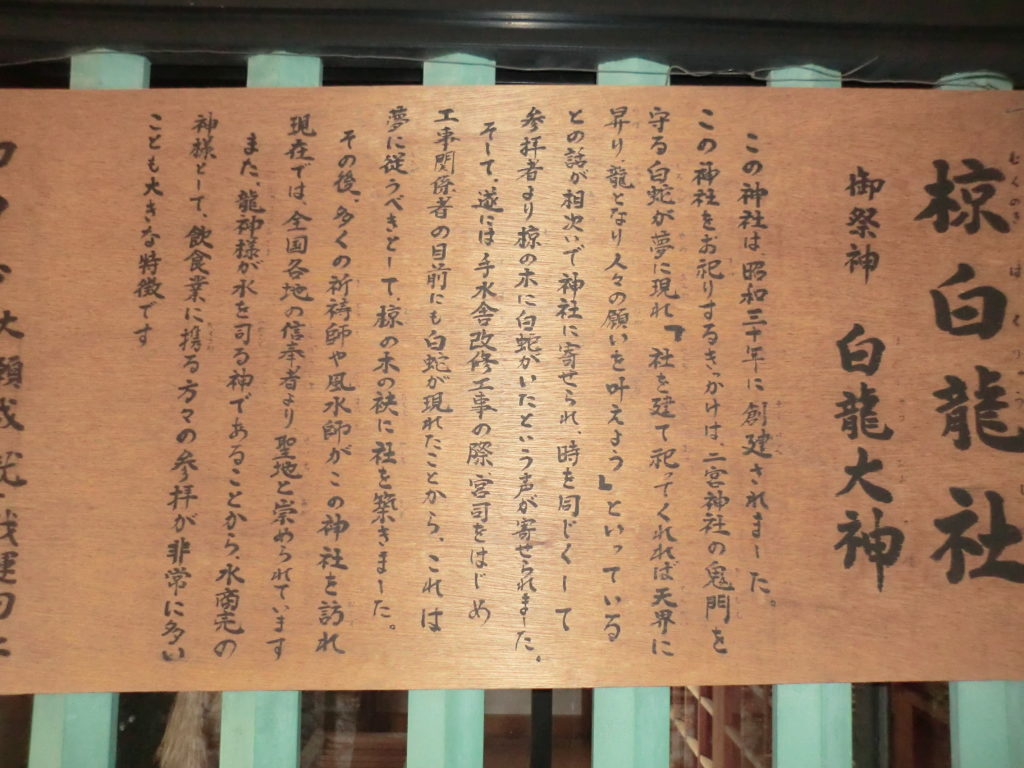 椋白龍社
御祭神 白龍大神
この神社は、昭和三十年に創建されました。
この神社をお祀りするきっかけは、二宮神社の鬼門を
守る白蛇が夢に現れ「社を建て祀ってくれれば天界に
昇り、龍となり人々の願いを叶えよう」といっている
との話が相次いで神社に寄せられ、時を同じくして
参拝者より椋の木に白蛇がいたという声が寄せられました。
そして、遂には手水舎改修工事の際、宮司をはじめ
工事関係者の目前にも白蛇が現れたことから、これは
夢に従うべきとして、椋の木の袂に社を築きました。
その後、多くの祈祷師や風水師がこの神社を訪れ
現在では、全国各地の信奉者より聖地と崇められています
また、龍神様が水を司る神であることから、水商売の
神様として、飲食業に携る方々の参拝が非常に多い
ことも大きな特徴です